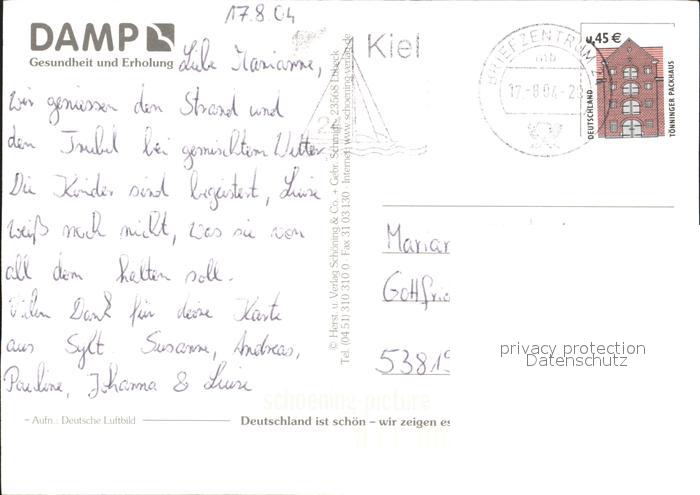 17.8.04
DAMP
Gesundheit und Erholung
Liebe Marianne,
wir geniessen den Strand und
den Trubel bei gemischtem Wetter.
Die Kinder sind begeistert, Luise
weiß noch nicht, was sie von
all dem halten soll.
Vielen Dank für deine Karte
aus Sylt. Susanne, Andreas,
Pauline, Johanna & Luise
Aufn.: Deutsche Luftbild
Deutschland ist schön – wir zeigen es
© Herst. u. Verlag Schöning & Co. + Gebr. Schmidt, 23568 Lübeck
Tel. (04 51) 310 310 0 · Fax 31 03 130 · Internet www.schoening-verlag.de
schoening-picture
Kiel
BRIEFZENTRUM
mb
17.-8.04-20
0,45 €
DEUTSCHLAND
TÖNNINGER PACKHAUS
Marian
Gottfrie
53819
privacy protection
Datenschutz